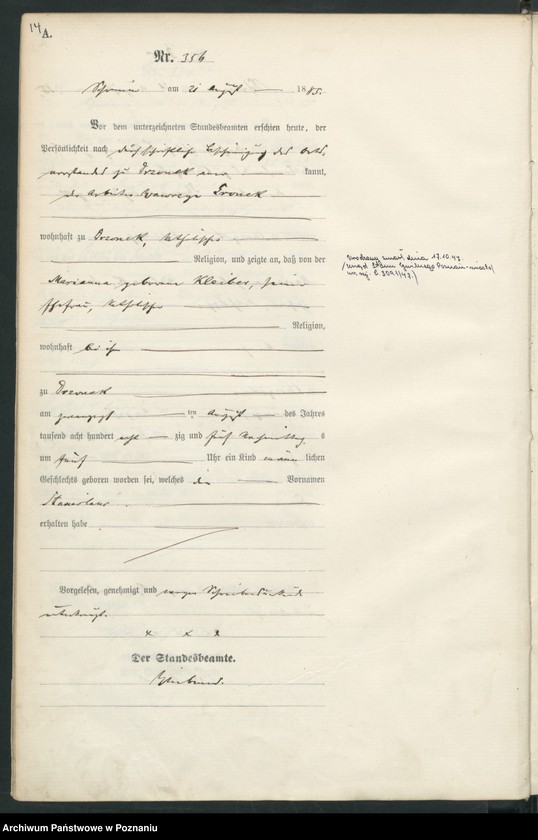 14
A.
Nr. 356
am 21 August 1885.
Vor dem unterzeneten Standesbeamten erschien heute, der
Persönlichkeit nach durch schriftliche Bescheinigung des Orts,
vorstandes zu kannt,
der Arbeiter Wawrzyn Fronck
wohnhaft zu katholischer
Religion, und zeigte an, daß von der
Marianna geborene Kleiber, seiner
Ehefrau, katholischer
Religion,
wohnhaft bei ihm
zu
am zwanzigsten ten August des Jahres
tausend acht hundert acht zig und fünf Nachmittag s
um fünf Uhr ein Kind männ lichen
Geschlechts geboren worden sei, welches den Vornamen
Stanislaus
erhalten habe
Vorgelesen, genehmigt und wegen Schreibensunkunde
unterkreuzt.
x x x
Der Standesbeamte.
wodzony zmarł dnia 17.10.47.
/ Urząd Stanu Cywilnego Poznań-miasto/
Archiwum Państwowe w Poznaniu